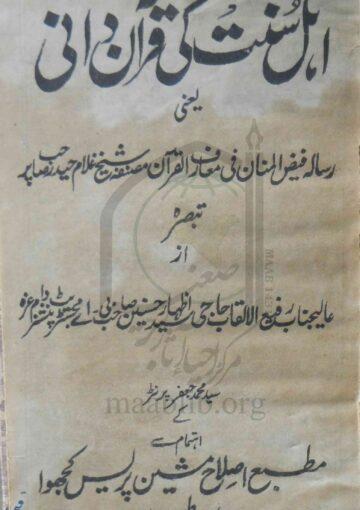 اہل سنت کی قرآن دانی
یعنی
رسالہ فیض المنان فی معارف القرآن مصنفہ شیخ غلام حیدر صاحب پر
تبصرہ
از
عالیجناب رفیع الالقاب حاجی سید اظہار حسنین صاحب بی۔ اے مجسٹریٹ پنشنر دام عزہ
سید محمد جعفر پرنٹر
کے
اہتمام سے
مطبع اصلاح مشین پریس کھجوا
maablib.org